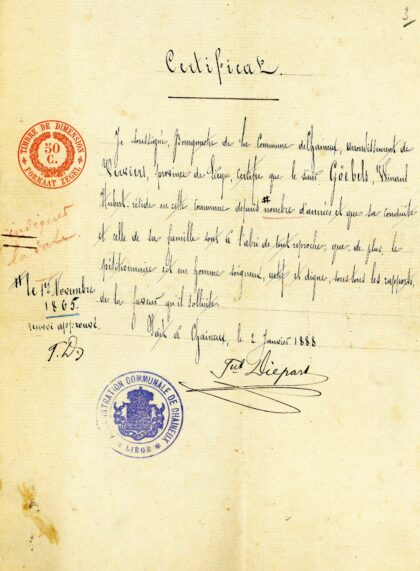 3
Certificat.
Je soussigné, Bourgmestre de la Commune de Chaineux, arrondissement de
Verviers, province de Liége, certifie que le sieur Göebels, Winant
Hubert, réside en cette commune depuis # nombre d'années et que sa conduite
et celle de sa famille sont à l'abri de tout reproche; que, de plus, le
pétitionnaire est un homme soigneux, actif et digne, sous tous les rapports,
de la faveur qu'il sollicite.
Fait à Chaineux, le 2 Janvier 1888
Diepart
TIMBRE DE DIMENSION
50
C.
FORMAAT ZEGEL
indiquer
la date
# le 1er Novembre
1865.
renvoi approuvé.
J. D.
ADMINISTRATION COMMUNALE DE CHAINEUX
* LIÉGE *